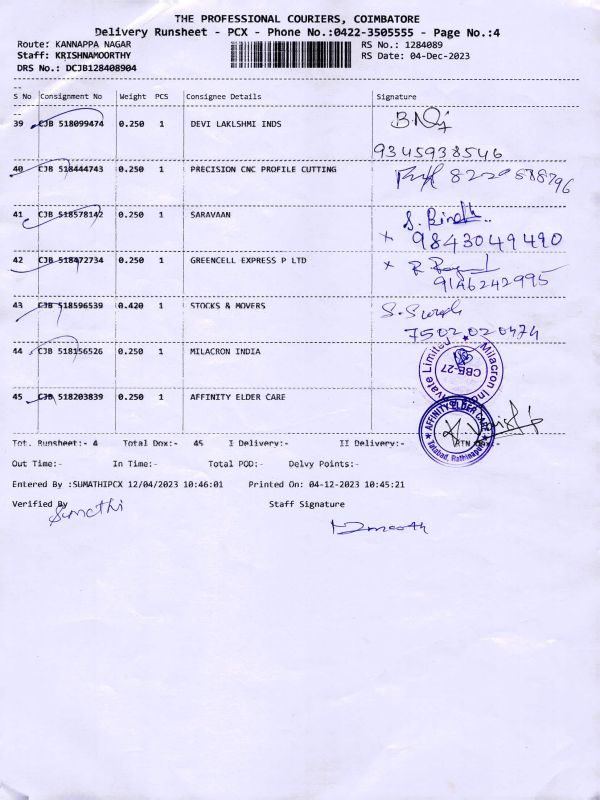 THE PROFESSIONAL COURIERS, COIMBATORE
Delivery Runsheet - PCX - Phone No.:0422-3505555 - Page No.:4
Route: KANNAPPA NAGAR RS No.: 1284089
Staff: KRISHNAMOORTHY RS Date: 04-Dec-2023
DRS No.: DCJB128408904
S No Consignment No Weight PCS Consignee Details Signature
39 CJB 518099474 0.250 1 DEVI LAKLSHMI INDS
9345938546
40 CJB 518444743 0.250 1 PRECISION CNC PROFILE CUTTING
41 CJB 518578142 0.250 1 SARAVAAN S. Binoth
x 9843049490
42 CJB 518472734 0.250 1 GREENCELL EXPRESS P LTD x
43 CJB 518596539 0.420 1 STOCKS & MOVERS
7502020474
44 CJB 518156526 0.250 1 MILACRON INDIA
Milacron India Private Limited CBE-27
45 CJB 518203839 0.250 1 AFFINITY ELDER CARE
AFFINITY ELDER CARE
Tot. Runsheet:- 4 Total Dox:- 45 I Delivery:- II Delivery:- RTN
Out Time:- In Time:- Total POD:- Delvy Points:-
Entered By :SUMATHIPCX 12/04/2023 10:46:01 Printed On: 04-12-2023 10:45:21
Verified By Staff Signature
Sumathi